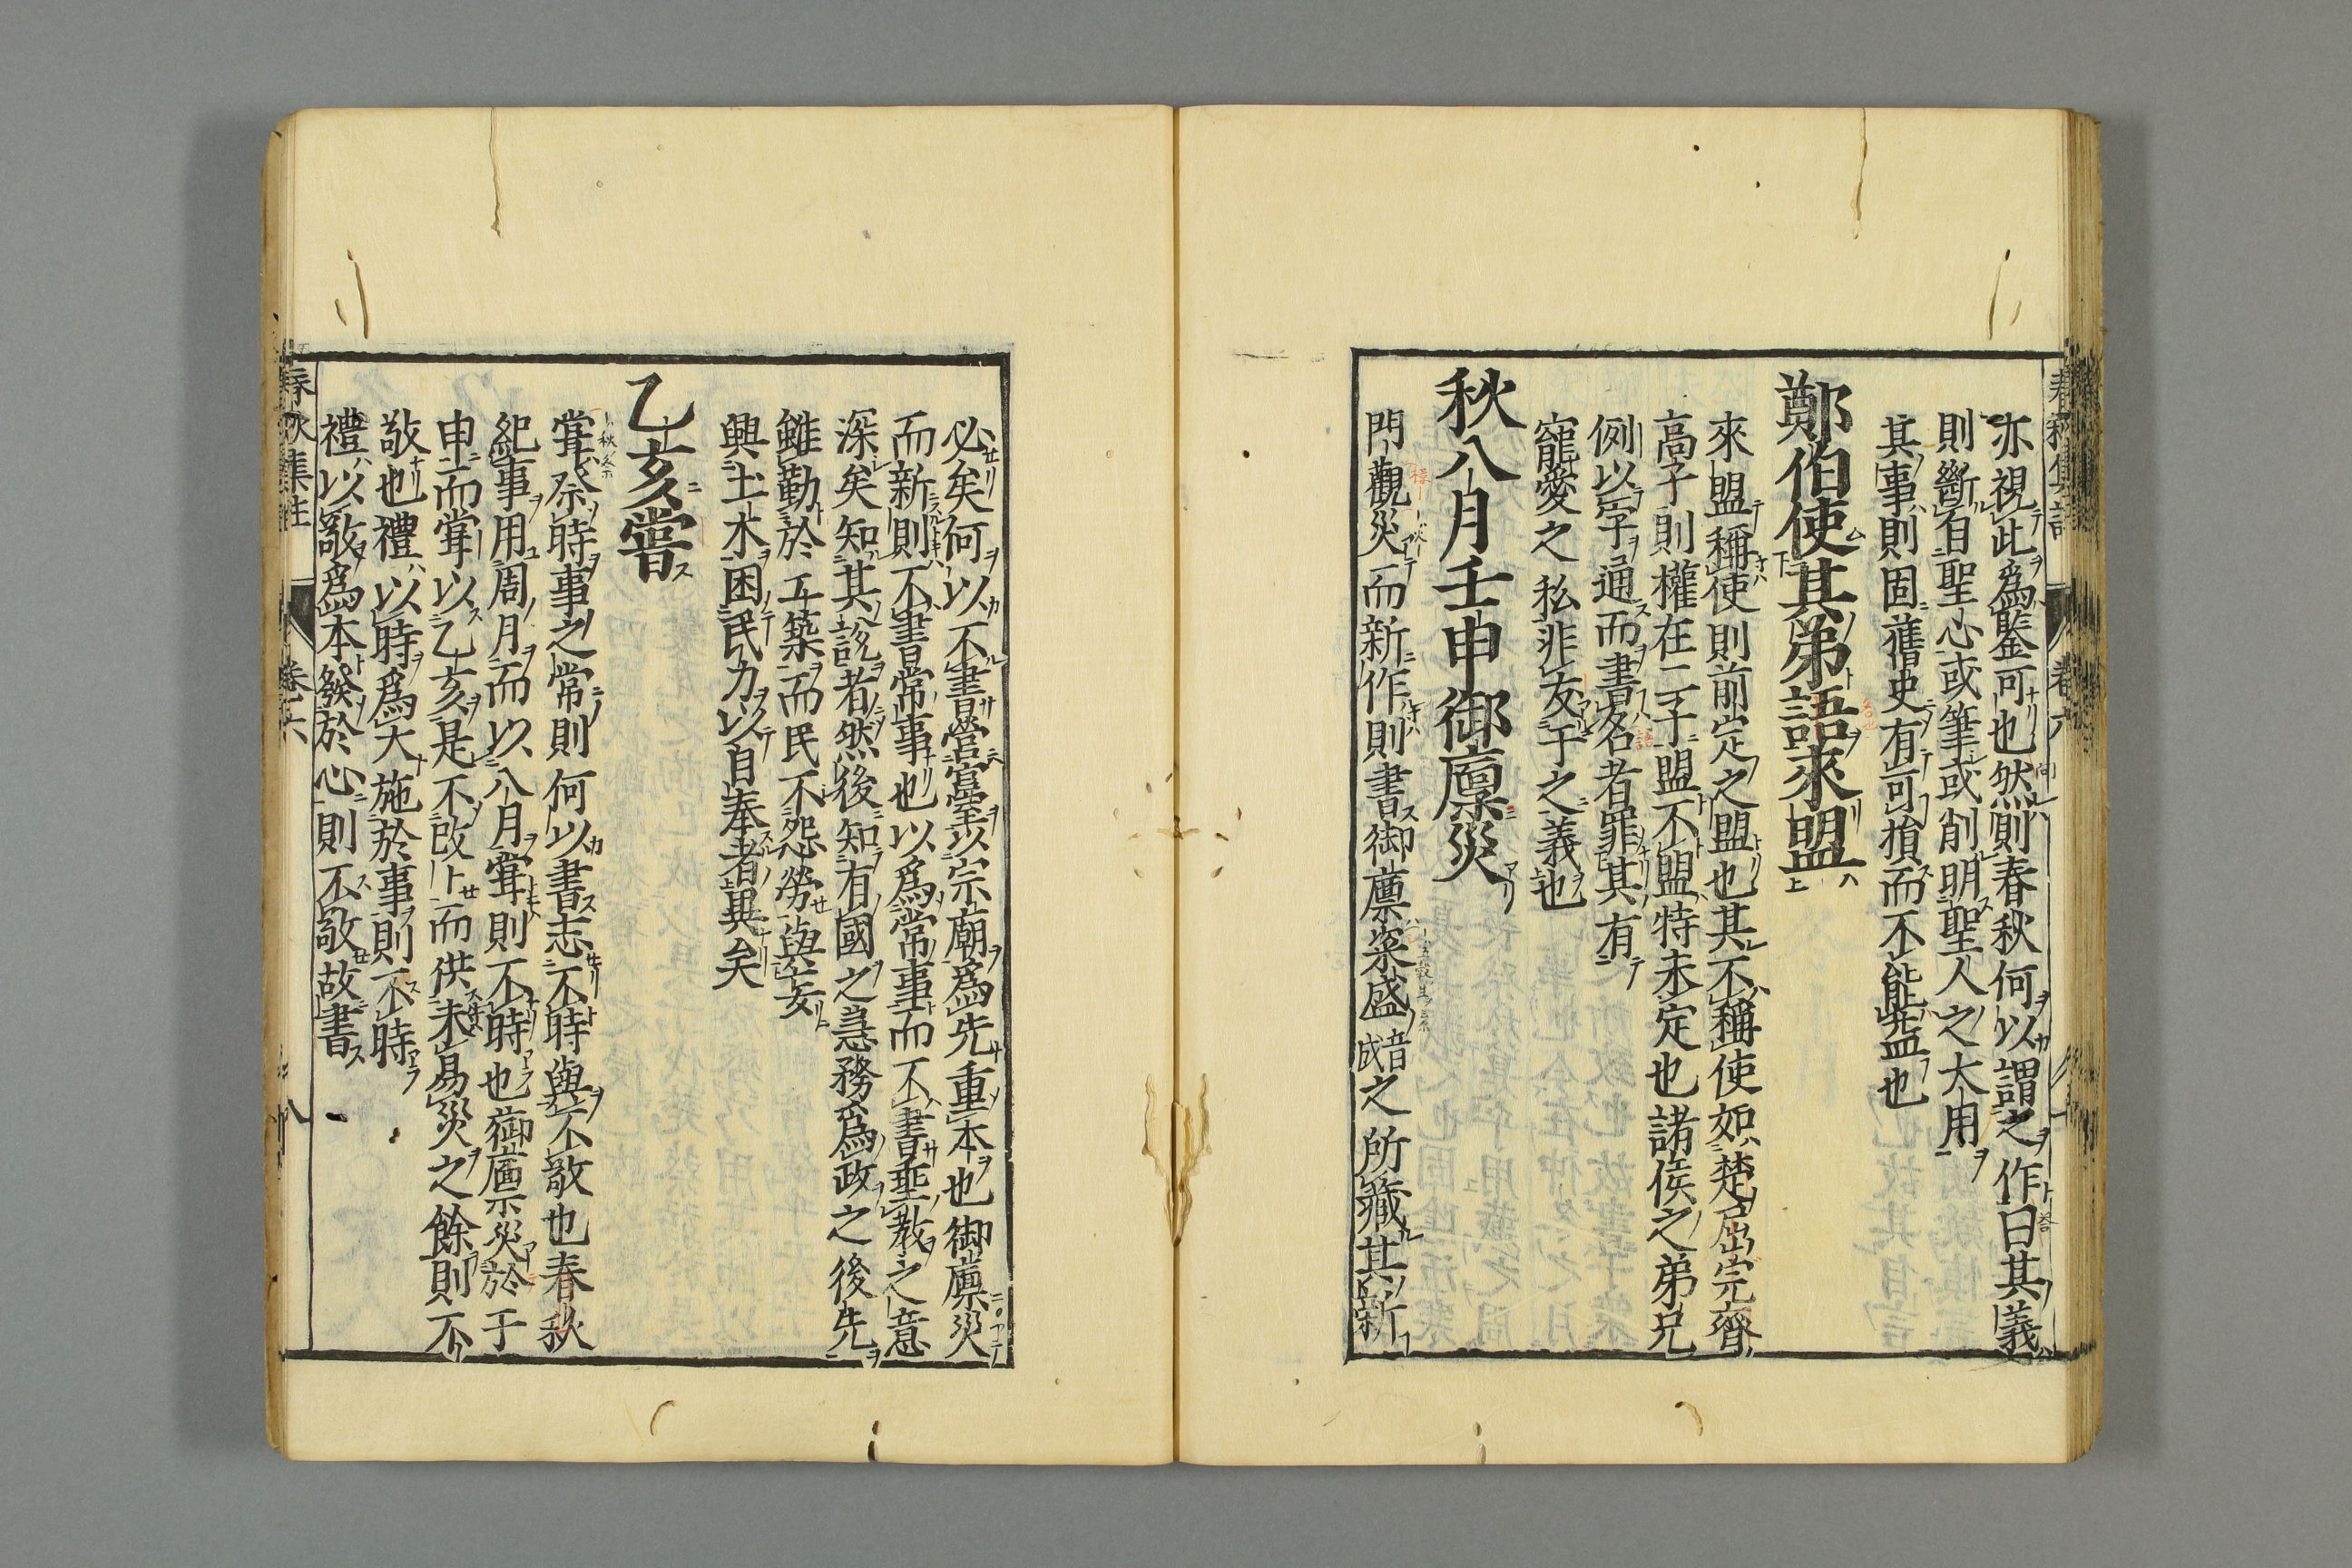 亦視此爲鑒可也然則春秋何以謂之作曰其義
則斷自聖心或筆或削明聖人之大用
其事則固舊史有可損而不能益也
鄭伯使其弟語來盟
來盟稱使則前定之盟也其不稱使如楚屈完齊
高子則權在二子盟不盟特未定也諸侯之弟兄
例以字通而書名者罪其有
寵愛之私非友于之義也
秋八月壬申御廩災
門觀災而新作則書御廩粢盛音成之所藏其新
必矣何以不書營宮室以宗廟爲先重本也御廩災
而新則不書常事也以爲常事而不書聖教之意
深矣知其說者然後知有國之急務爲政之後先
雖勤於工築而民不怨勞與妄
興土木困民力以自奉者異矣
乙亥嘗
嘗祭時事之常則何以書志不時與不敬也春秋
紀事用周月而以八月嘗則不時也御廩災於
壬
申而嘗以乙亥是不改卜而供未易災之餘則不
敬也禮以時爲大施於事則不時
禮以敬爲本發於心則不敬故書
春秋集註 卷六 八